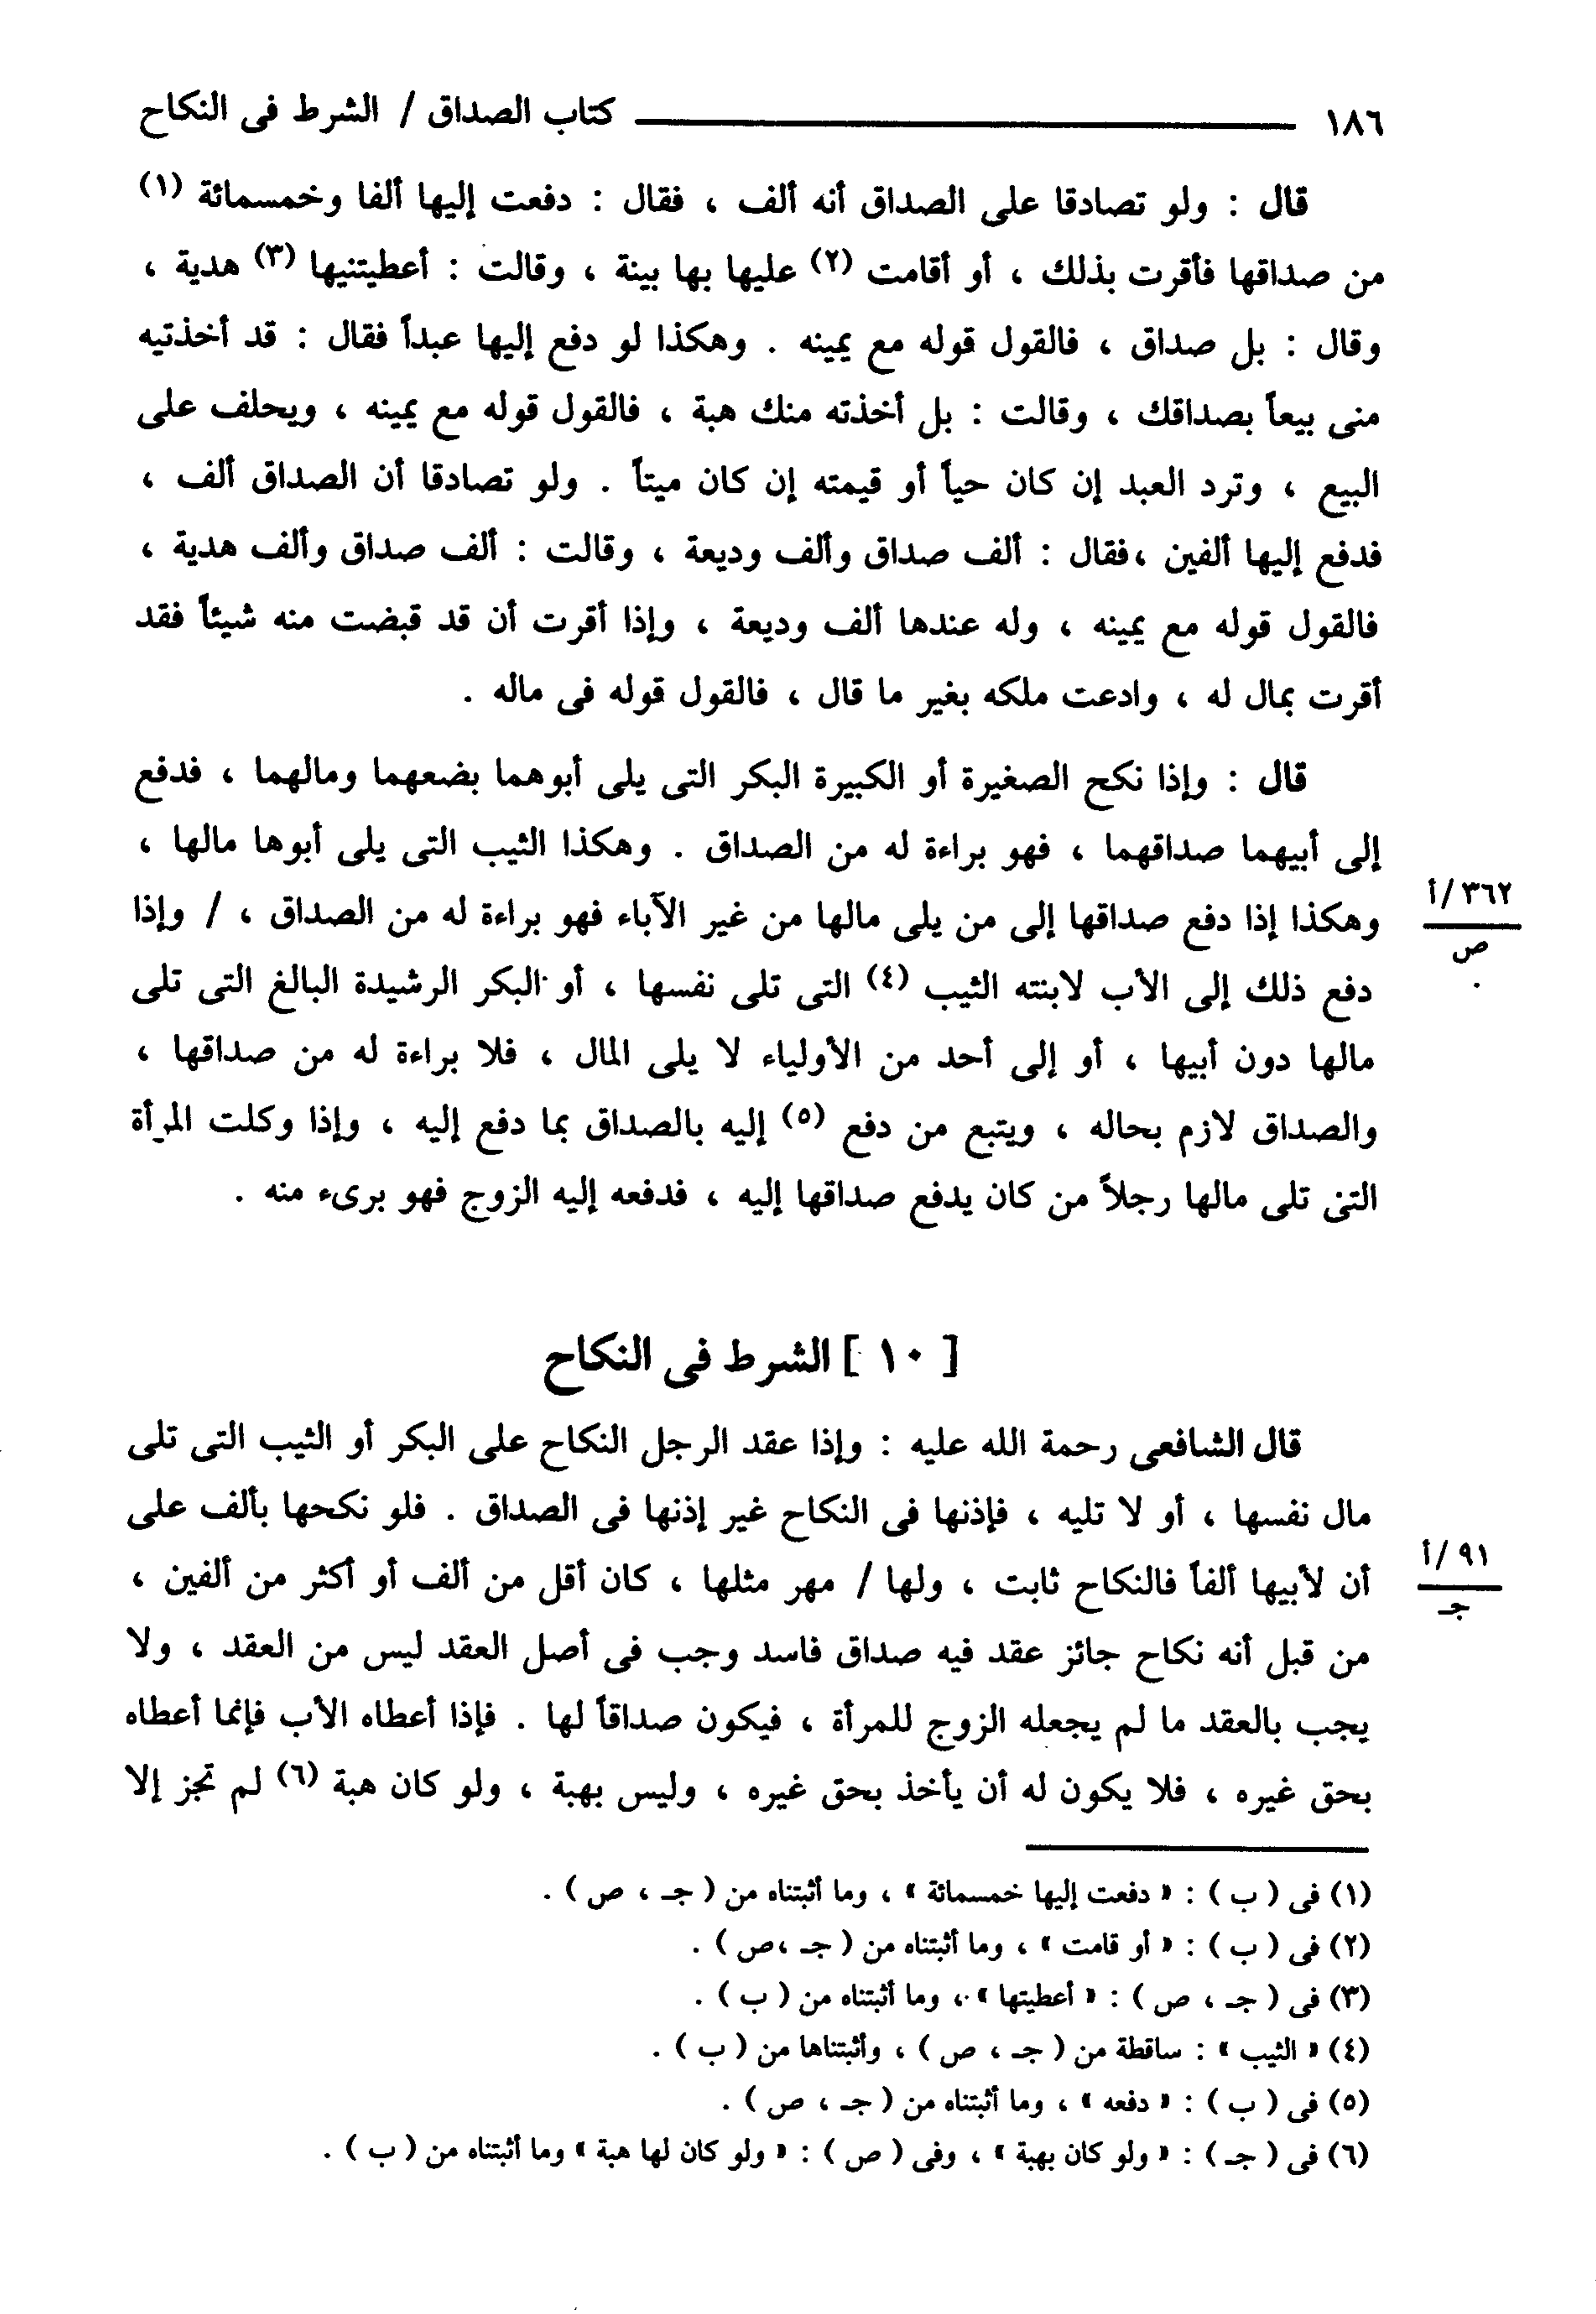 ١٨٦ كتاب الصداق / الشرط فى النكاح
قال : ولو تصادقا على الصداق أنه ألف ، فقال : دفعت إليها ألفا وخمسمائة (١)
من صداقها فأقرت بذلك ، أو أقامت (٢) عليها بها بينة ، وقالت : أعطيتنيها (٣) هدية ،
وقال : بل صداق ، فالقول قوله مع يمينه . وهكذا لو دفع إليها عبداً فقال : قد أخذتيه
منى بيعاً بصداقك ، وقالت : بل أخذته منك هبة ، فالقول قوله مع يمينه ، ويحلف على
البيع ، وترد العبد إن كان حياً أو قيمته إن كان ميتاً . ولو تصادقا أن الصداق ألف ،
فدفع إليها ألفين ،فقال : ألف صداق وألف وديعة ، وقالت : ألف صداق وألف هدية ،
فالقول قوله مع يمينه ، وله عندها ألف وديعة ، وإذا أقرت أن قد قبضت منه شيئاً فقد
أقرت بمال له ، وادعت ملكه بغير ما قال ، فالقول قوله فى ماله .
قال : وإذا نكح الصغيرة أو الكبيرة البكر التى يلى أبوهما بضعهما ومالهما ، فدفع
إلى أبيهما صداقهما ، فهو براءة له من الصداق . وهكذا الثيب التى يلى أبوها مالها ،
وهكذا إذا دفع صداقها إلى من يلى مالها من غير الآباء فهو براءة له من الصداق ، / وإذا
٣٦٢/أ
ص
دفع ذلك إلى الأب لابنته الثيب (٤) التى تلى نفسها ، أو البكر الرشيدة البالغ التى تلى
مالها دون أبيها ، أو إلى أحد من الأولياء لا يلى المال ، فلا براءة له من صداقها ،
والصداق لازم بحاله ، ويتبع من دفع (٥) إليه بالصداق بما دفع إليه ، وإذا وكلت المرأة
التى تلى مالها رجلاً من كان يدفع صداقها إليه ، فدفعه إليه الزوج فهو برىء منه .
[ ١٠ ] الشرط فى النكاح
قال الشافعى رحمة الله عليه : وإذا عقد الرجل النكاح على البكر أو الثيب التى تلى
مال نفسها ، أو لا تليه ، فإذنها فى النكاح غير إذنها فى الصداق . فلو نكحها بألف على
أن لأبيها ألفاً فالنكاح ثابت ، ولها / مهر مثلها ، كان أقل من ألف أو أكثر من ألفين ،
٩١/أ
جـ
من قبل أنه نكاح جائز عقد فيه صداق فاسد وجب فى أصل العقد ليس من العقد ، ولا
يجب بالعقد ما لم يجعله الزوج للمرأة ، فيكون صداقاً لها . فإذا أعطاه الأب فإنما أعطاه
بحق غيره ، فلا يكون له أن يأخذ بحق غيره ، وليس بهبة ، ولو كان هبة (٦) لم تجز إلا
(١) فى ( ب ) : « دفعت إليها خمسمائة » ، وما أثبتناه من ( جـ ، ص ) .
(٢) فى ( ب ) : « أو قامت » ، وما أثبتناه من ( جـ ،ص ) .
(٣) فى ( جـ ، ص ) : « أعطيتها » ، وما أثبتناه من ( ب ) .
(٤) « الثيب » : ساقطة من ( جـ ، ص ) ، وأثبتناها من ( ب ) .
(٥) فى ( ب ) : « دفعه » ، وما أثبتناه من ( جـ ، ص ) .
(٦) فى ( جـ ) : « ولو كان بهبة » ، وفى ( ص ) : « ولو كان لها هبة » وما أثبتناه من ( ب ) .